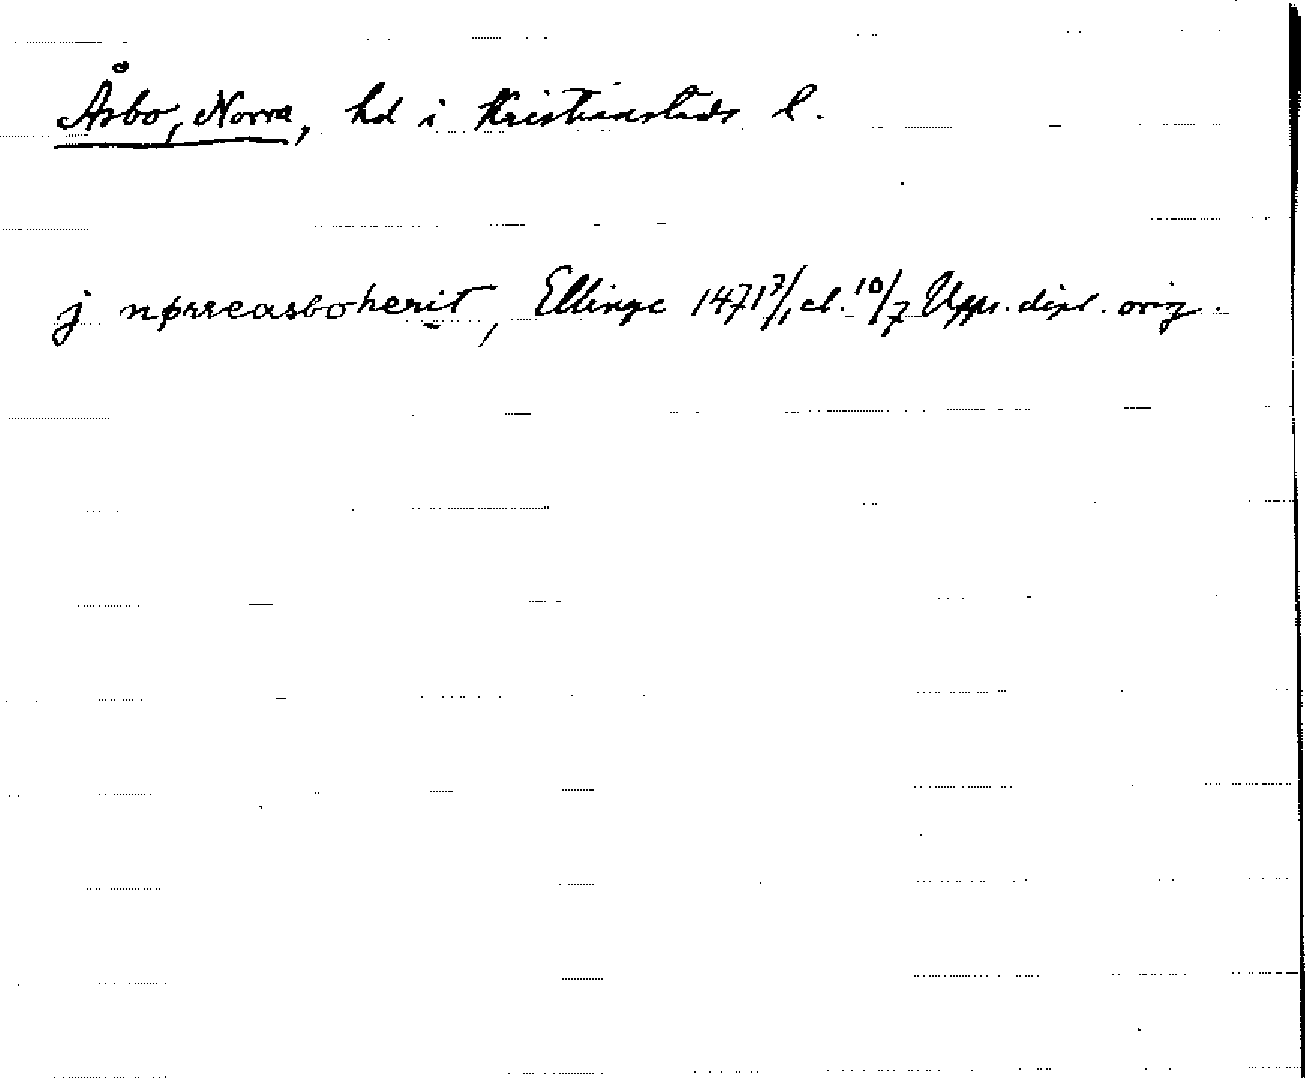 Åsbo, Norra, hd i Kristianstads l.
j nørreasboherit, Ellinge 1471 3/1, el. 10/7 Upps. dipl. orig.